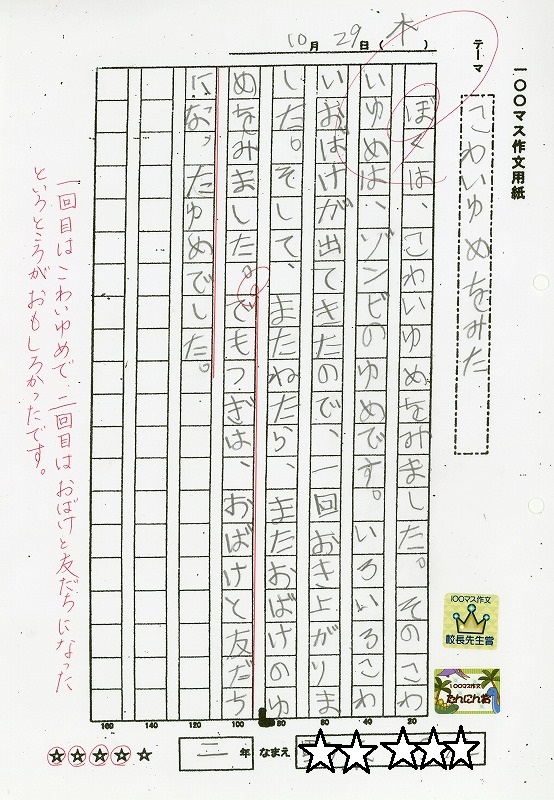 一〇〇マス作文用紙
テーマ
こわいゆめをみた
10月29日(木)
ぼくは、こわいゆめをみました。そのこわ
いゆめは、ゾンビのゆめです。いろいろこわ
いおばけが出てきたので、一回おき上がりま
した。そして、またねたら、またおばけのゆ
めをみました。でもつぎは、おばけと友だち
になったゆめでした。
一回目はこわいゆめで、二回目はおばけと友だちになった
というところがおもしろかったです。
100マス作文
校長先生賞
100マス作文
たんにん賞
160 140 120 100 80 60 40 20
二年 なまえ